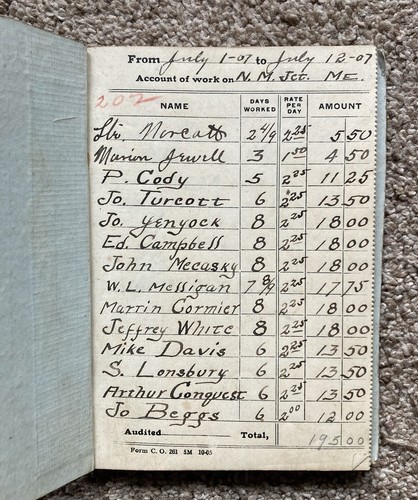 From July 1-07 to July 12-07
Account of work on N. M. Jct. ME.
202
NAME DAYS WORKED RATE PER DAY AMOUNT
Norcott 2 4/9 2 25 5 50
Marion Jewell 3 1 50 4 50
P. Cody 5 2 25 11 25
Jo. Turcott 6 2 25 13 50
Jo. Yenyock 8 2 25 18 00
Ed. Campbell 8 2 25 18 00
John Mecasky 8 2 25 18 00
W. L. Messigan 7 8/9 2 25 17 75
Martin Cormier 8 2 25 18 00
Jeffrey White 8 2 25 18 00
Mike Davis 6 2 25 13 50
S. Lonsbury 6 2 25 13 50
Arthur Conquest 6 2 25 13 50
Jo Beggs 6 2 00 12 00
Audited Total, 195 00
Form C. O. 261 5M 10-05